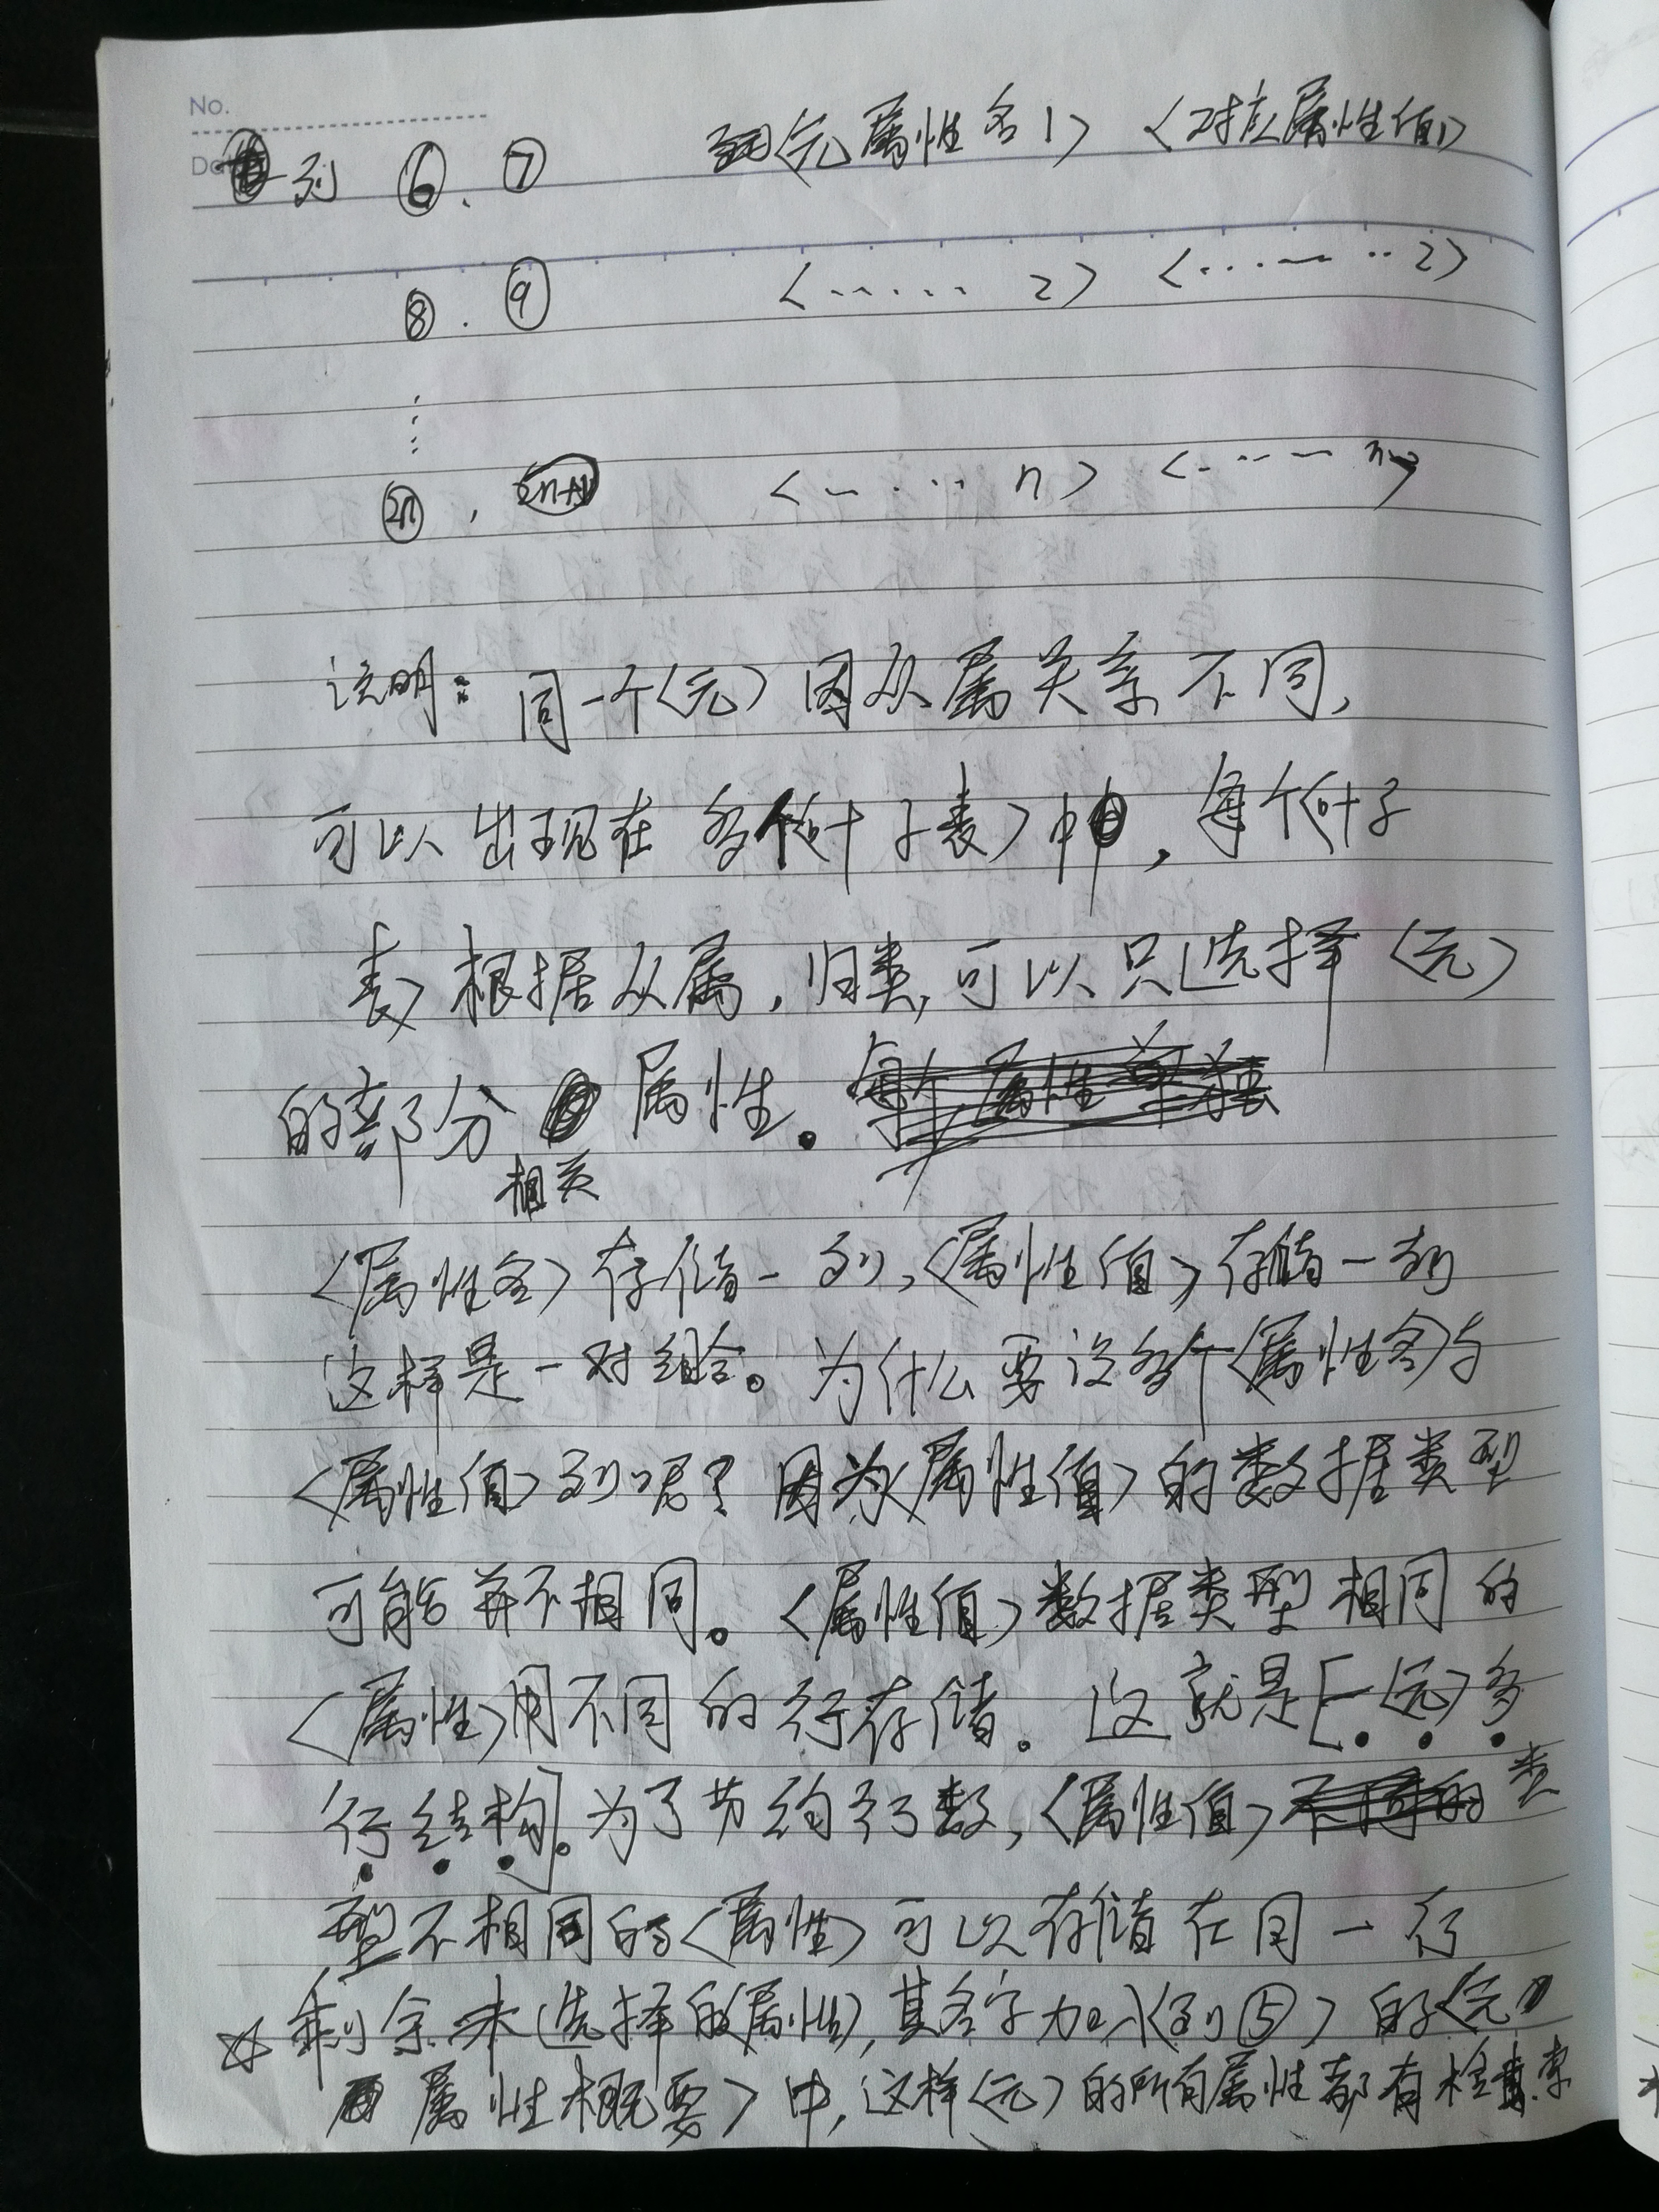 No.
列 ⑥、⑦ 〈元属性名1〉 〈对应属性值1〉
⑧.⑨ 〈…… 2〉 〈…… 2〉
⋮
2n , 2n+1 〈…… n〉 〈…… n〉
说明：同一个〈元〉因从属关系不同,
可以出现在多个〈叶子表〉中,每个〈叶子
表〉根据从属,归类,可以只选择〈元〉
的部分属性。
相关
〈属性名〉存储一列,〈属性值〉存储一列
这样是一对组合。为什么要设多个〈属性名〉与
〈属性值〉列呢？因为〈属性值〉的数据类型
可能并不相同。〈属性值〉数据类型相同的
〈属性〉用不同的行存储。这就是[一〈元〉多
行结构]。为了节约行数,〈属性值〉类
型不相同的〈属性〉可以存储在同一行
☆剩余未选择的〈属性〉,其名字加入〈列⑤〉的〈元
属性概要〉中,这样〈元〉的所有属性都有检索